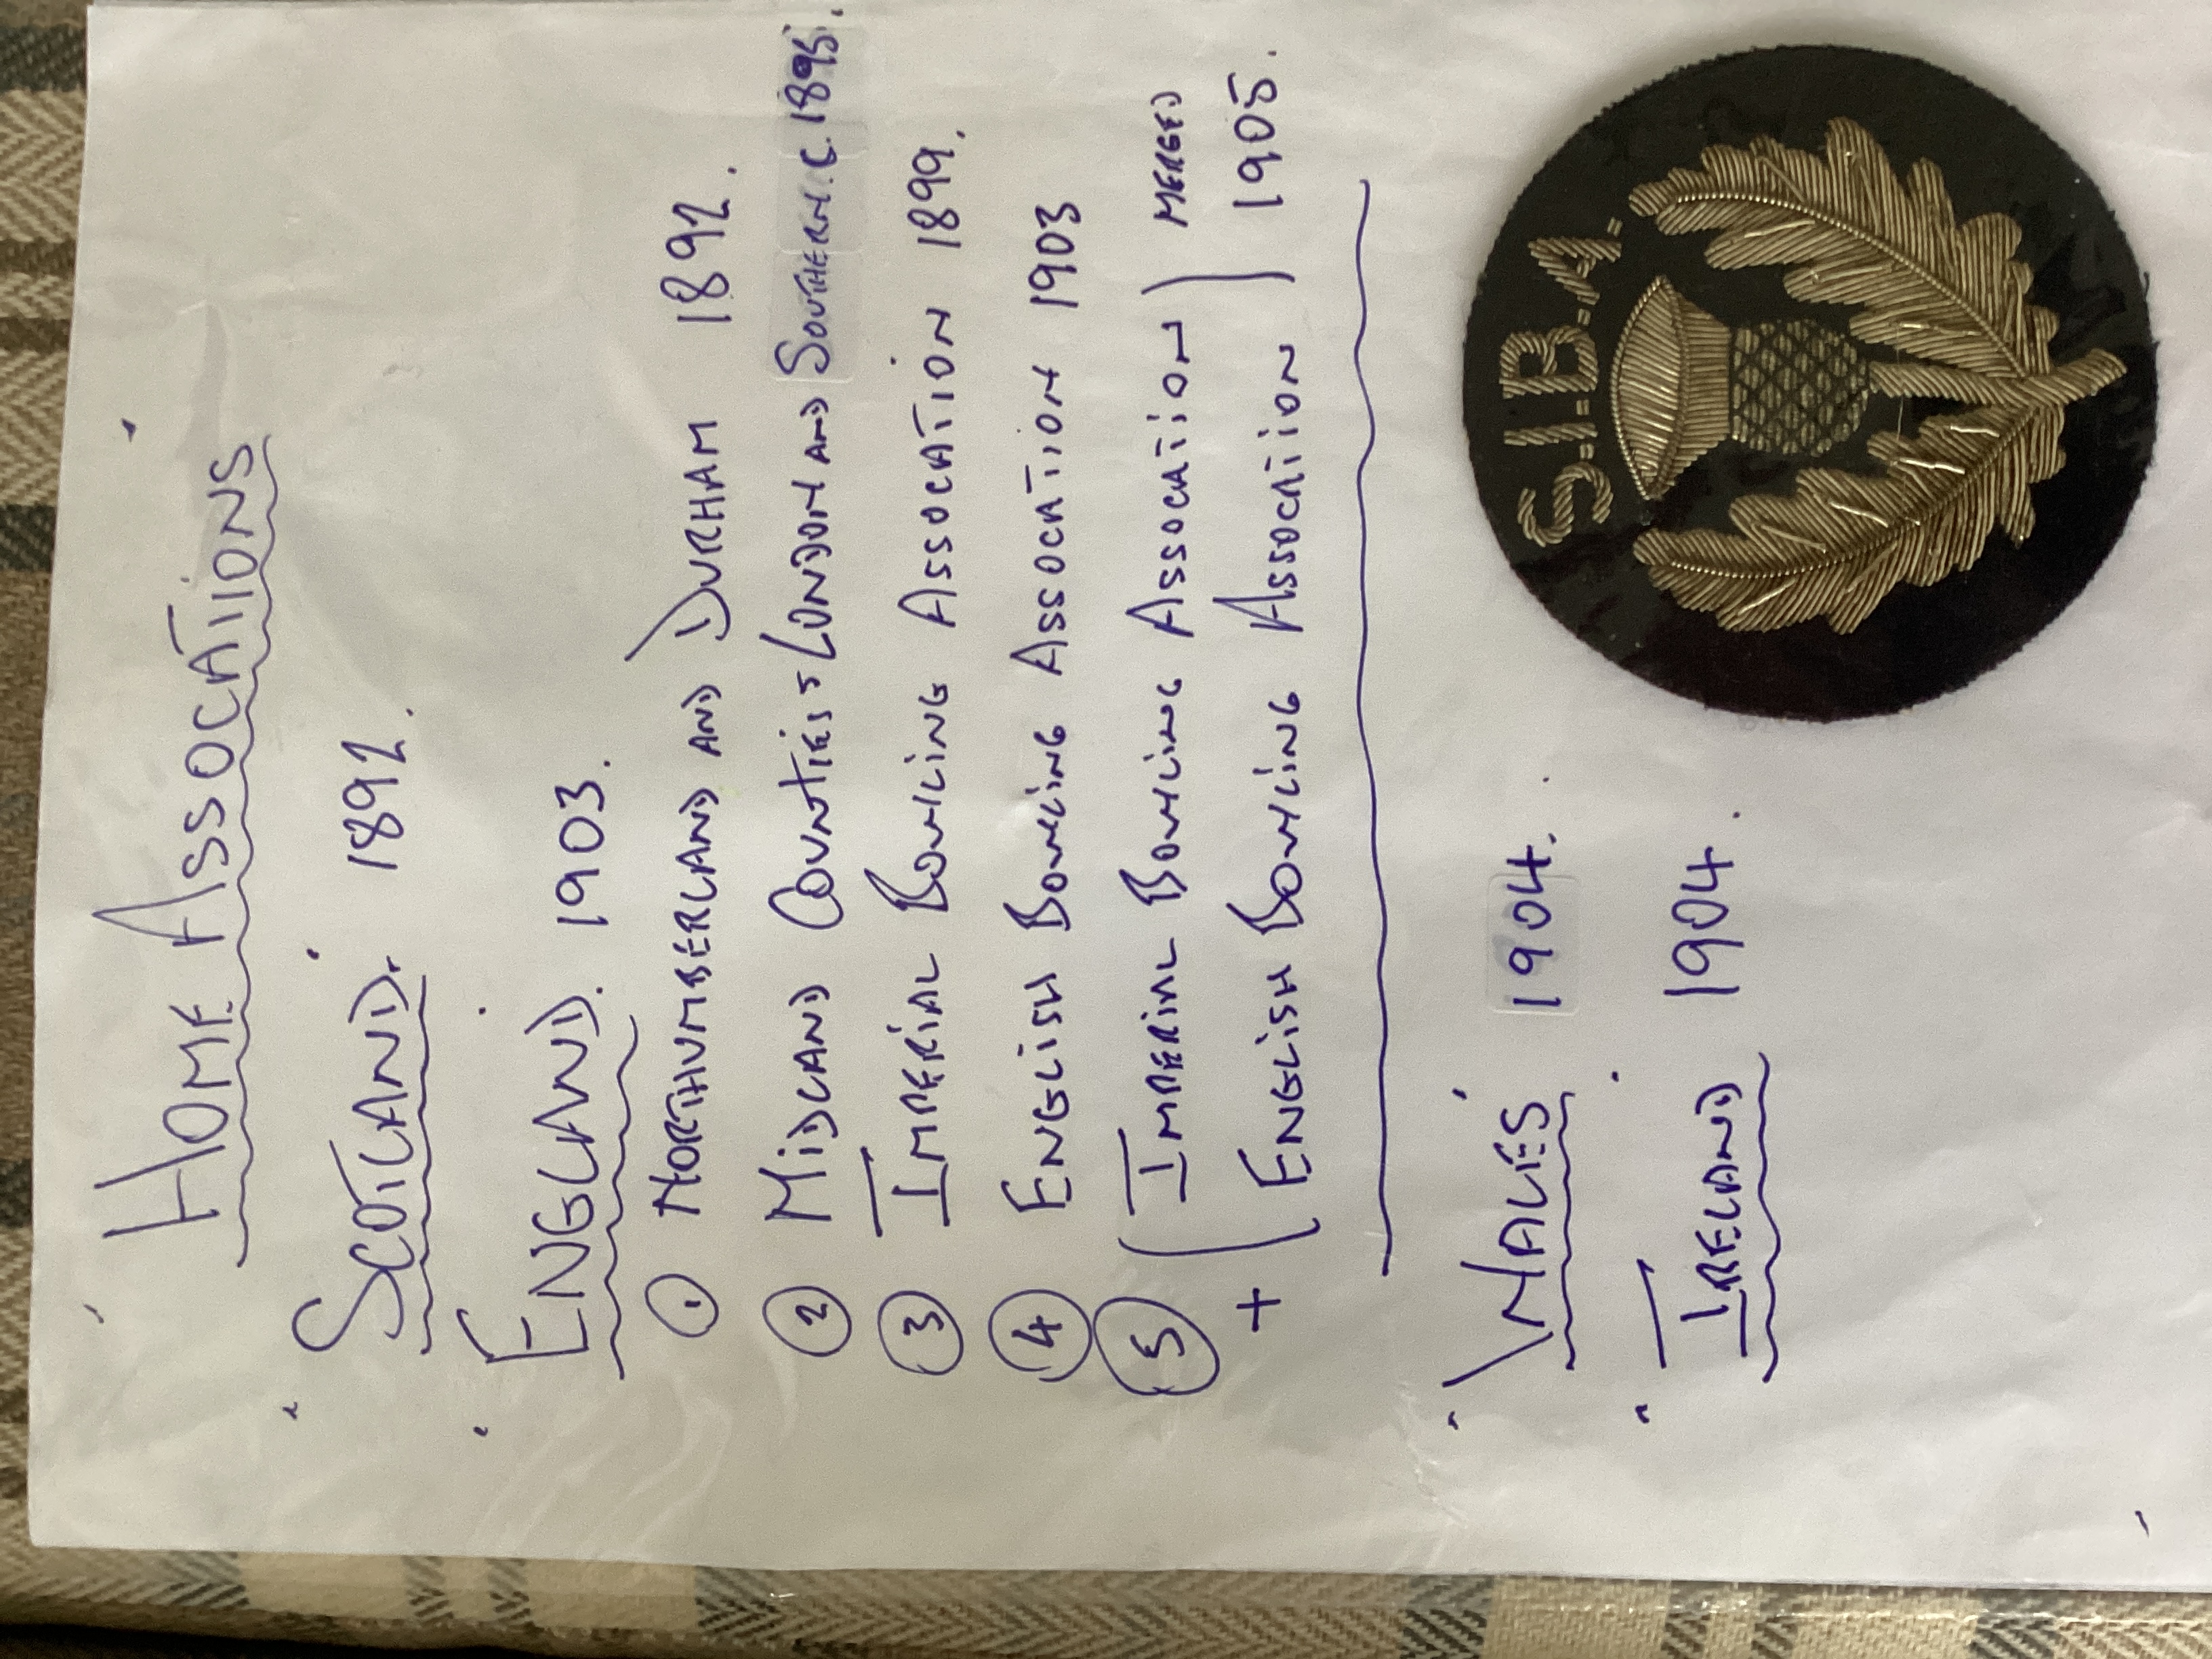 HOME ASSOCATIONS
SCOTLAND. 1892.
ENGLAND. 1903.
① NORTHUMBERLAND AND DURHAM 1892.
② MIDLAND COUNTIES LONDON AND SOUTHERN.C. 1895.
③ IMPERIAL BOWLING ASSOCATION 1899.
④ ENGLISH BOWLING ASSOCATION 1903
⑤ (IMPERIAL BOWLING ASSOCATION) MERGED
+ (ENGLISH BOWLING ASSOCATION) 1905.
WALES 1904.
IRELAND 1904.
S.I.B.A.